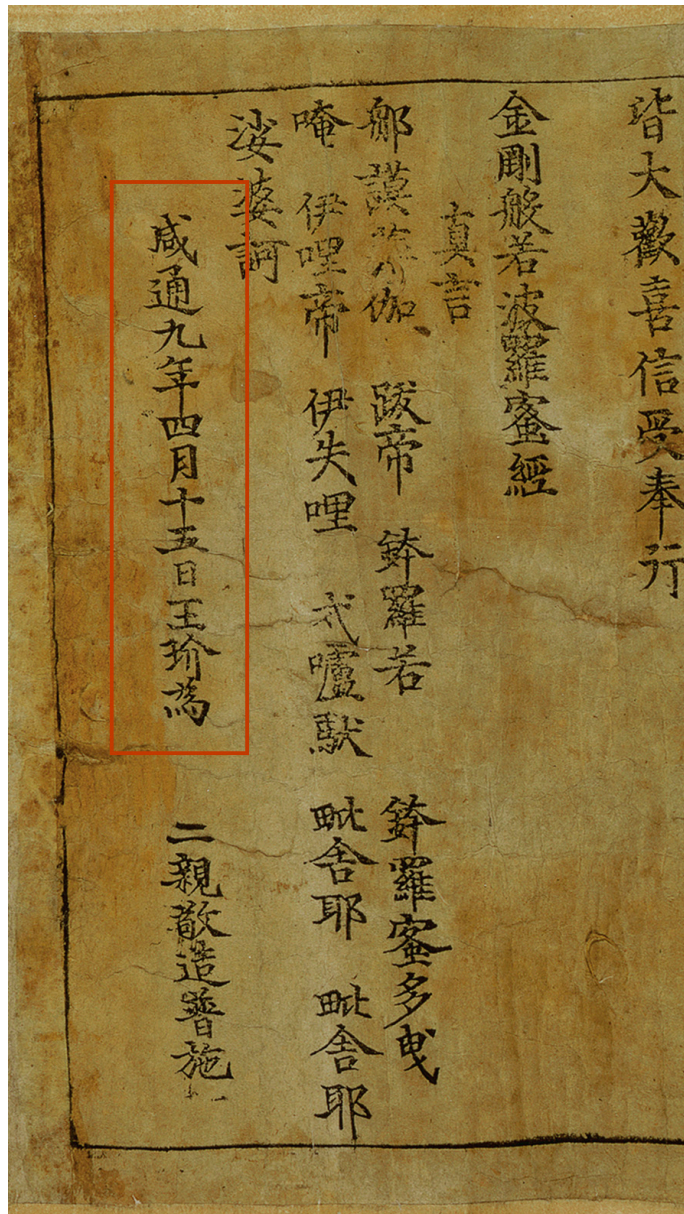 皆大歡喜信受奉行
金剛般若波羅蜜經
真言
那謨婆伽 跋帝 鉢羅若 鉢羅蜜多曳
唵 伊哩帝 伊失哩 戍嚧馱 毗舍耶 毗舍耶
娑婆訶
咸通九年四月十五日王玠為 二親敬造普施